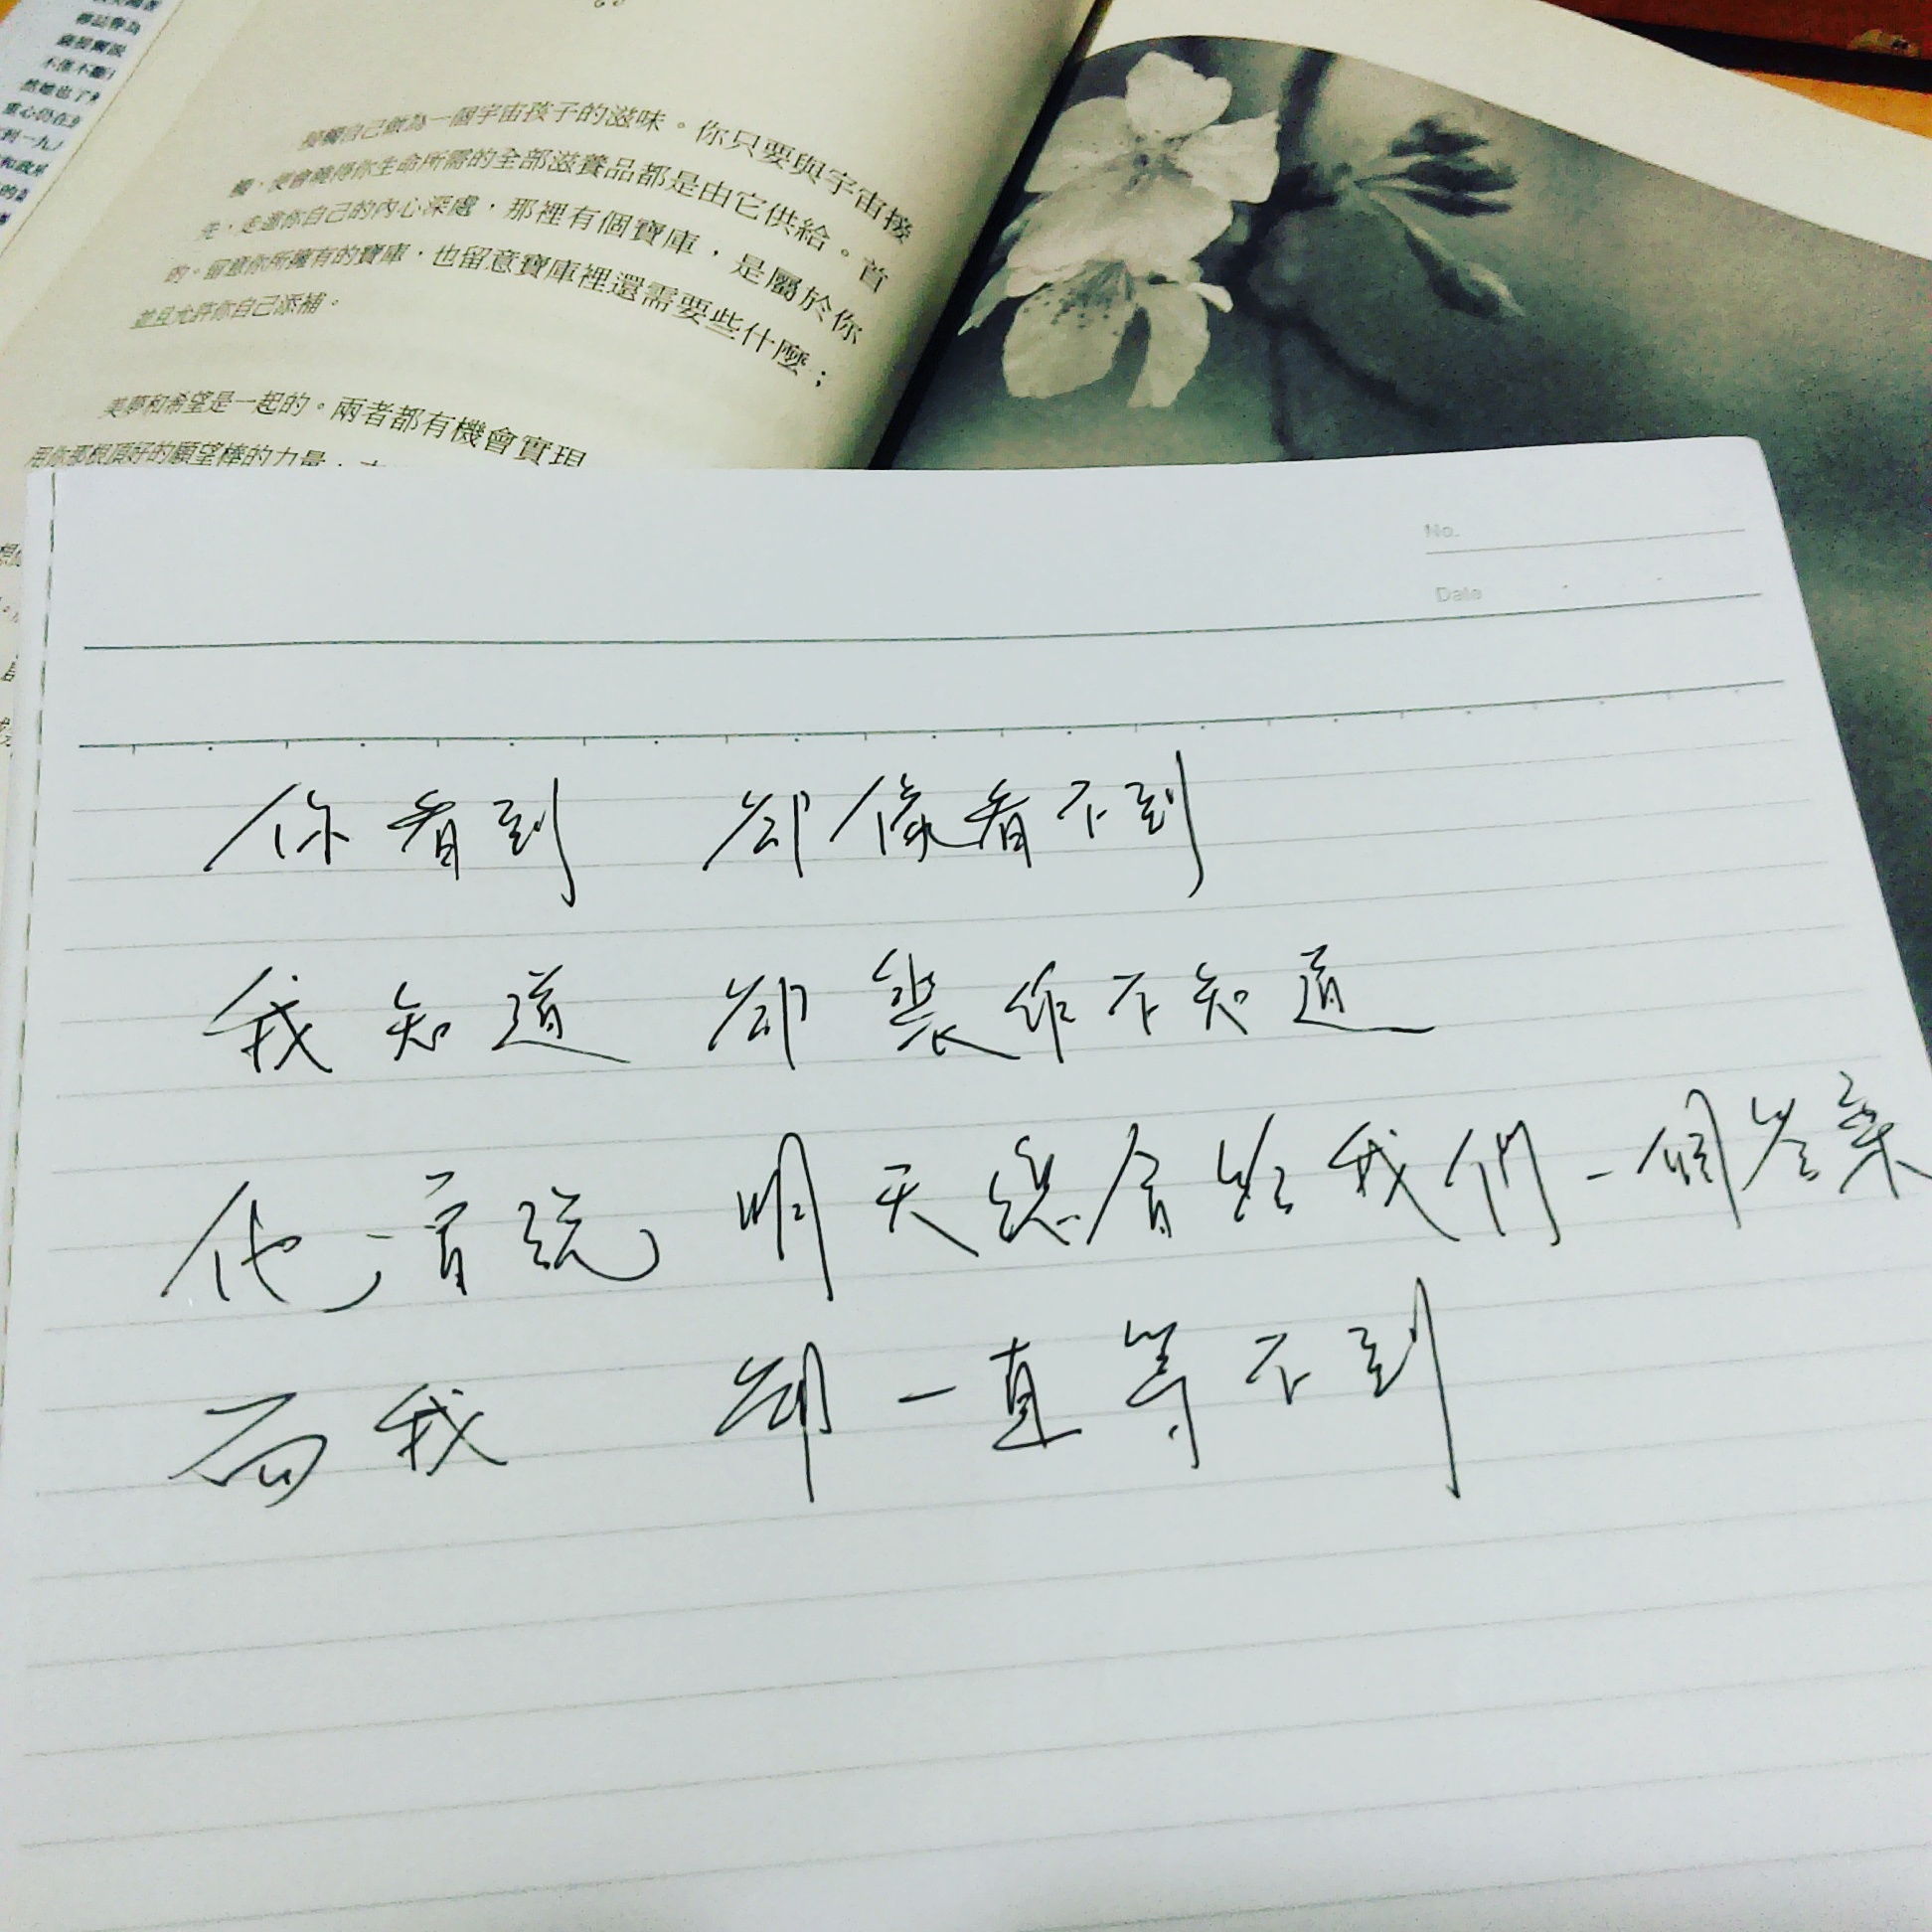 接觸自己做為一個宇宙孩子的滋味。你只要與宇宙接
觸，便會曉得你生命所需的全部滋養品都是由它供給。首
先，走進你自己的內心深處，那裡有個寶庫，是屬於你
的。留意你所擁有的寶庫，也留意寶庫裡還需要些什麼；
並且允許你自己添補。
美夢和希望是一起的。兩者都有機會實現
用你那根頂好的願望棒的力量，
No.
Date
你看到 卻像看不到
我知道 卻裝作不知道
他 曾說 明天總會給我們一個答案
而我 卻一直等不到